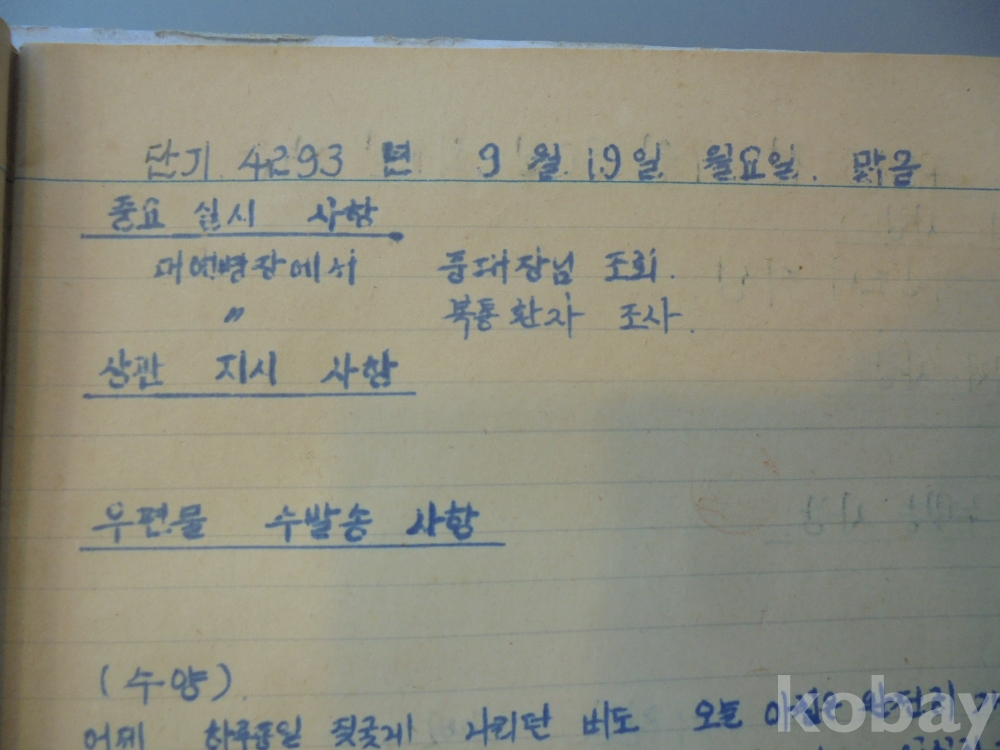 단기 4293 년 9 월 19일 월요일. 맑금
중요 실시 사항
대연병장에서 중대장님 조회.
〃 복통환자 조사.
상관 지시 사항
우편물 수발송 사항
(수양).
어제 하루종일 짖궂게 나리던 비도 오늘 아침은 완전히
kobay